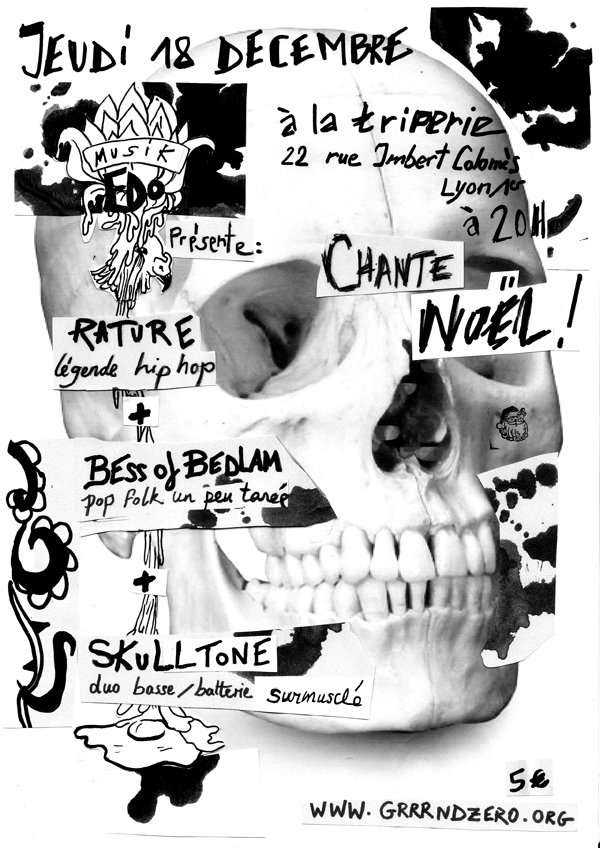 JEUDI 18 DECEMBRE
à la triperie
22 rue Imbert Colomès
Lyon 1er
à 20H
MUSIK
EDO
Présente:
CHANTE
NOËL!
RATURE
légende hip hop
+
BESS of BEDLAM
pop folk un peu tarée
+
SKULLTONE
duo basse/batterie surmusclé
5€
WWW.GRRRNDZERO.ORG